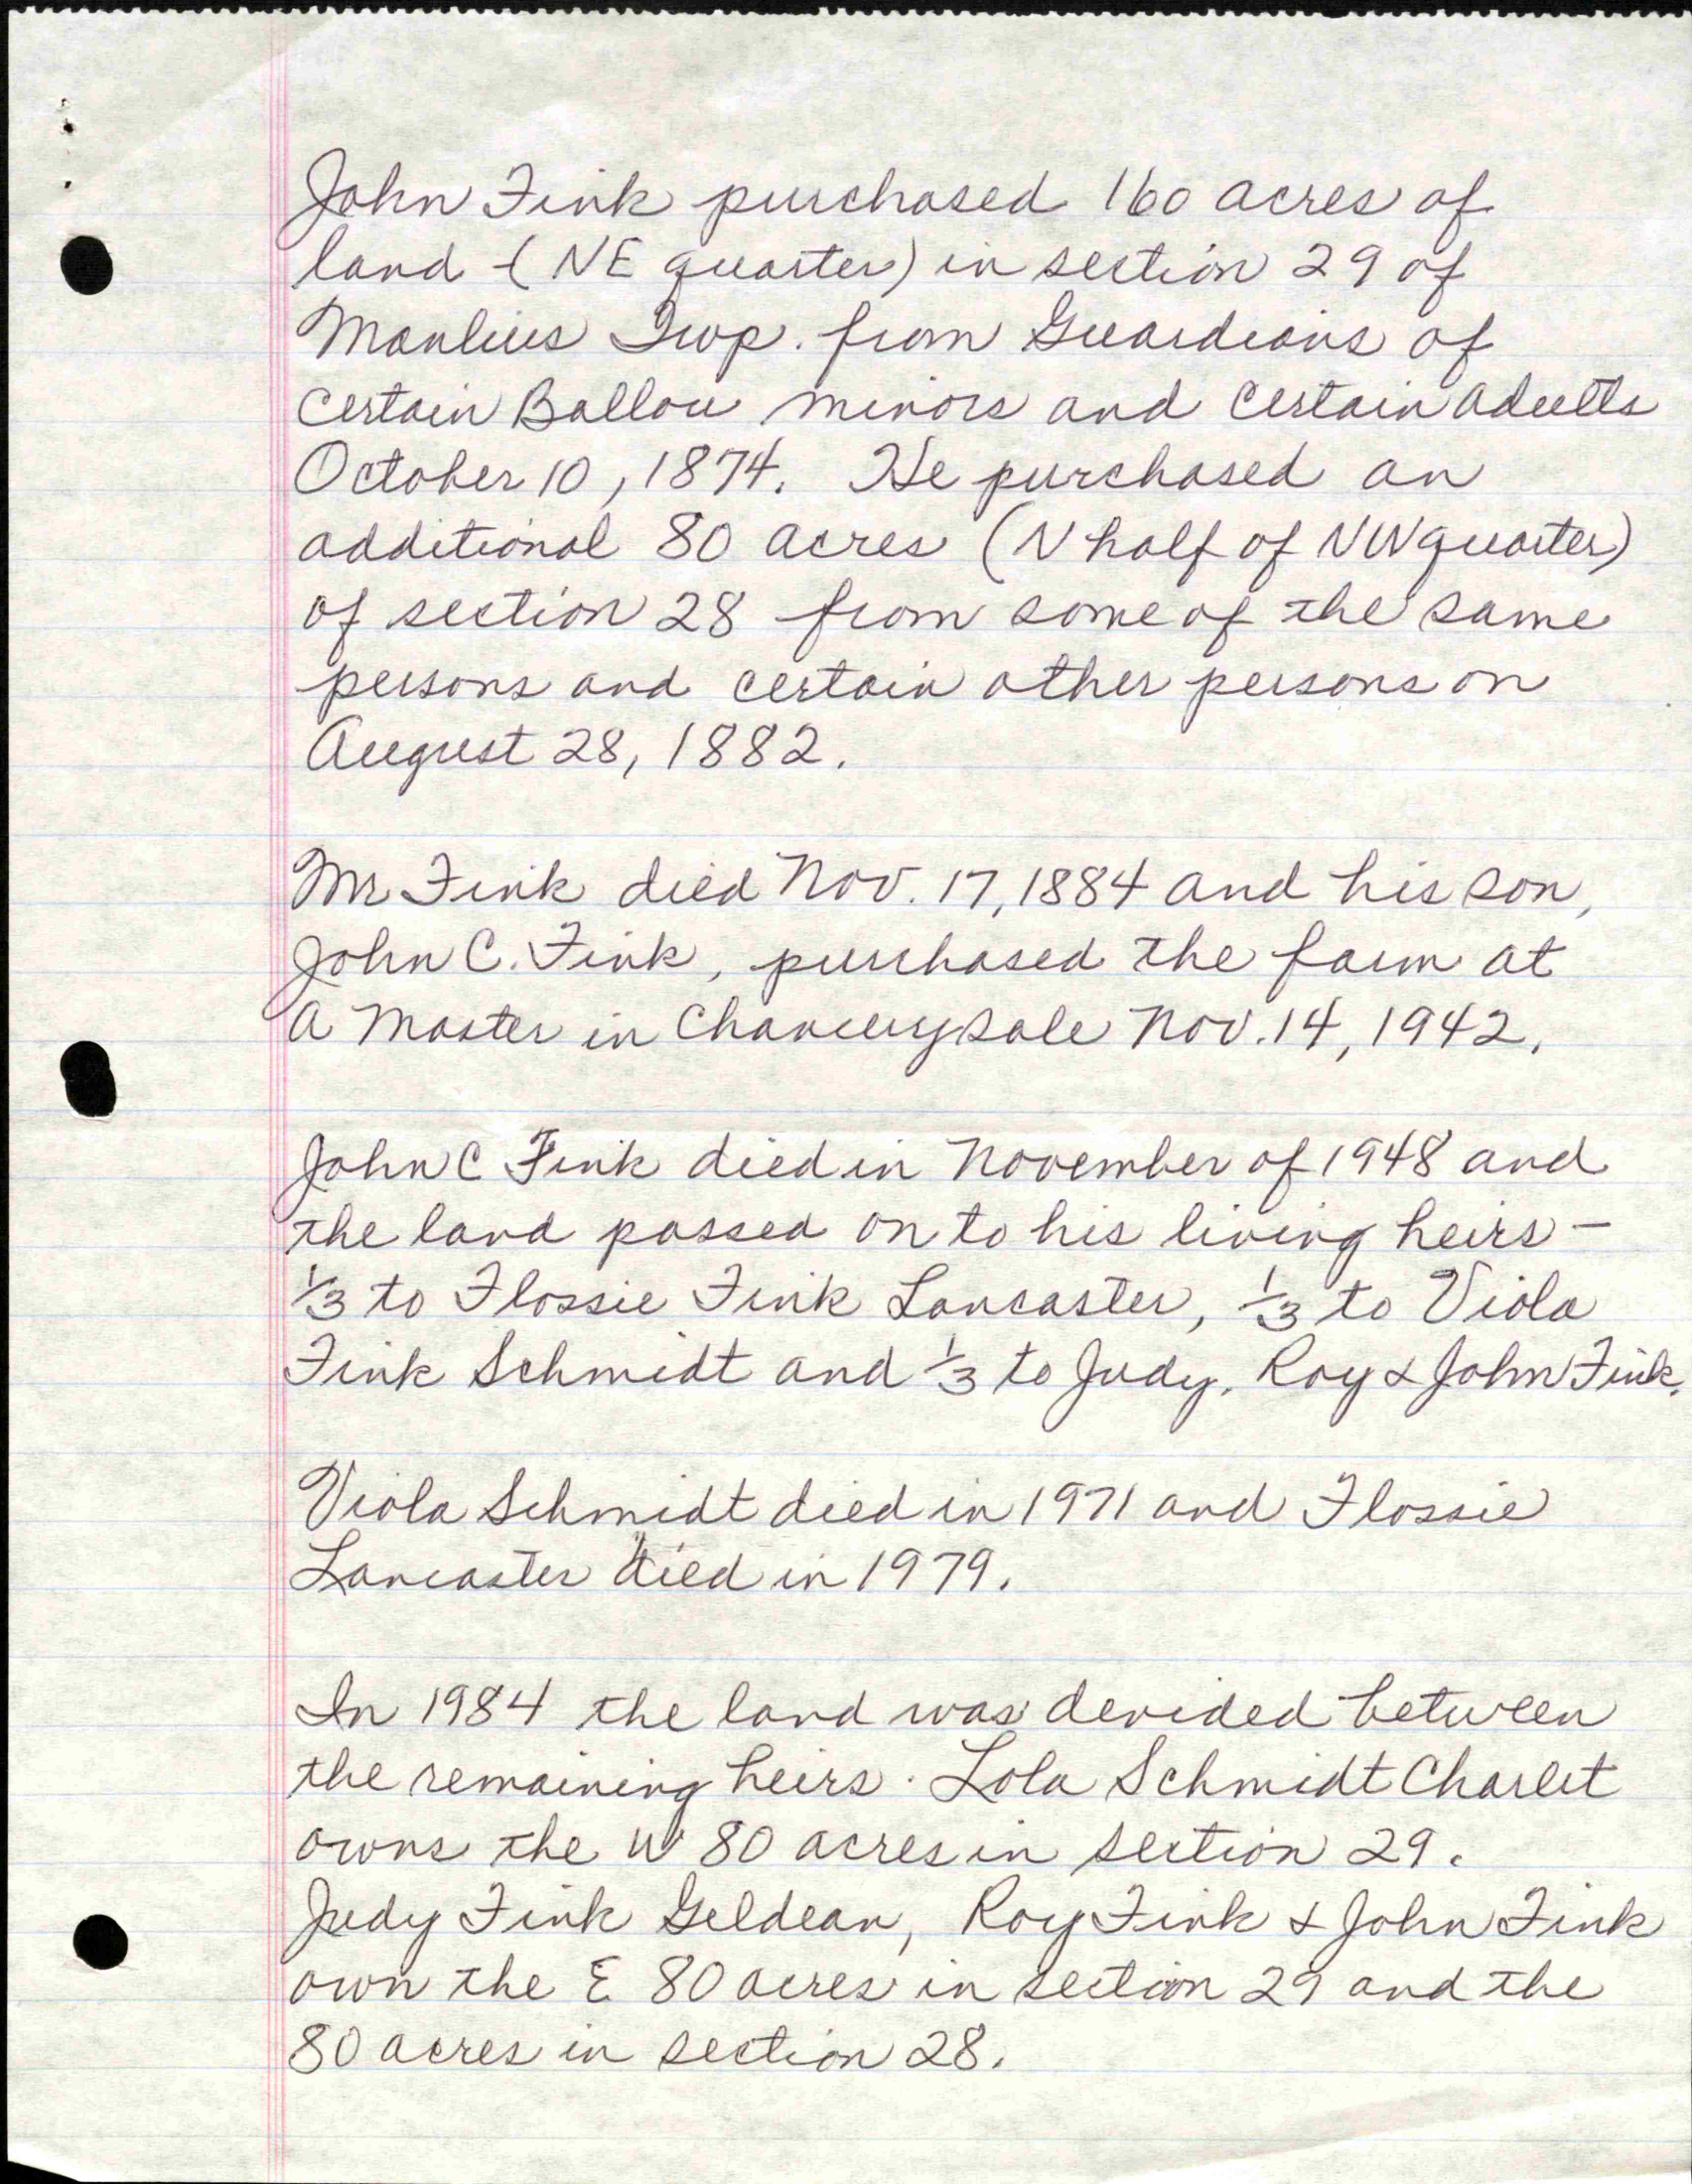 John Fink purchased 160 acres of
land (NE quarter) in section 29 of
Manlius Twp. from Guardians of
certain Ballou minors and certain adults
October 10, 1874. He purchased an
additional 80 acres (N half of NW quarter)
of section 28 from some of the same
persons and certain other persons on
August 28, 1882.
Mr Fink died Nov. 17, 1884 and his son,
John C. Fink, purchased the farm at
a Master in Chancery sale Nov. 14, 1942.
John C Fink died in November of 1948 and
the land passed on to his living heirs –
1/3 to Flossie Fink Lancaster, 1/3 to Viola
Fink Schmidt and 1/3 to Judy, Roy & John Fink.
Viola Schmidt died in 1971 and Flossie
Lancaster died in 1979.
In 1984 the land was devided between
the remaining heirs. Lola Schmidt Charlet
owns the W 80 acres in section 29.
Judy Fink Geldean, Roy Fink & John Fink
own the E 80 acres in section 29 and the
80 acres in section 28.